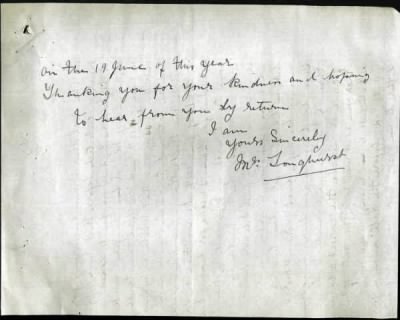 on the 19 June of this year
Thanking you for your kindness and hoping
to hear from you by return
I am
Yours Sincerely
Mrs Longhurst